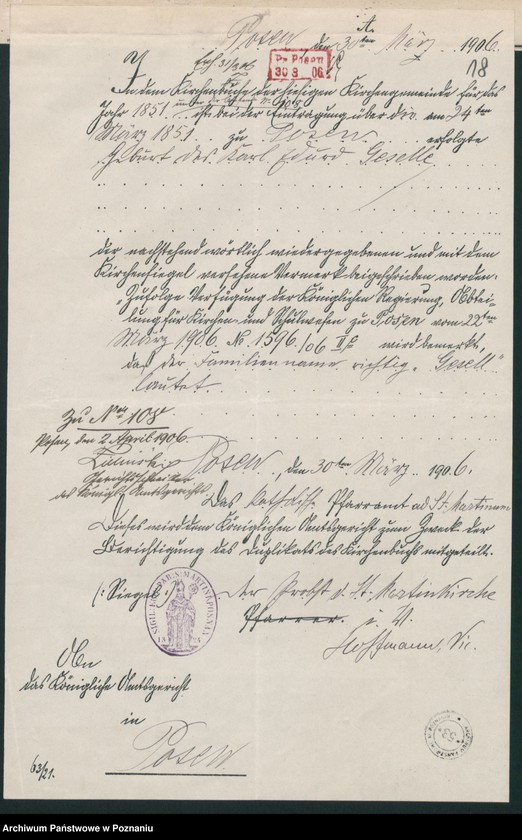 Posen, den 30ten März 1906.
Pr. Posen
30 3 06
18
In dem Kirchenbuche der hiesigen Kirchengemeinde für das
Jahr 1851. ist bei der Eintragung über die am 24ten
März 1851 zu Posen erfolgte
Geburt des Karl Eduard Geselle
der nachstehend wörtlich wiedergegebenen und mit dem
Kirchensiegel versehene Vermerk beigeschrieben worden:
"Zufolge Verfügung der Königlichen Regierung, Abtei-
lung für Kirchen- und Schulwesen zu Posen vom 22ten
März 1906. No. 1596/06 II wird bemerkt,
daß der Familienname richtig "Gesell"
lautet.
Zu No 108
Posen, den 2. April 1906.
Gerichtsschreiber
des Königl. Amtsgerichts.
Posen, den 30ten März 1906.
Das kathol. Pfarramt ad St. Martinum
Dieses wird dem Königlichen Amtsgericht zum Zweck der
Berichtigung des Duplikats des Kirchenbuchs mitgeteilt.
(: Siegel :) Der Probst d. St. Martinkirche
Pfarrer. i. V.
Hoffmann, Vic.
An
das Königliche Amtsgericht
in
Posen
63/21.
53
Archiwum Państwowe w Poznaniu